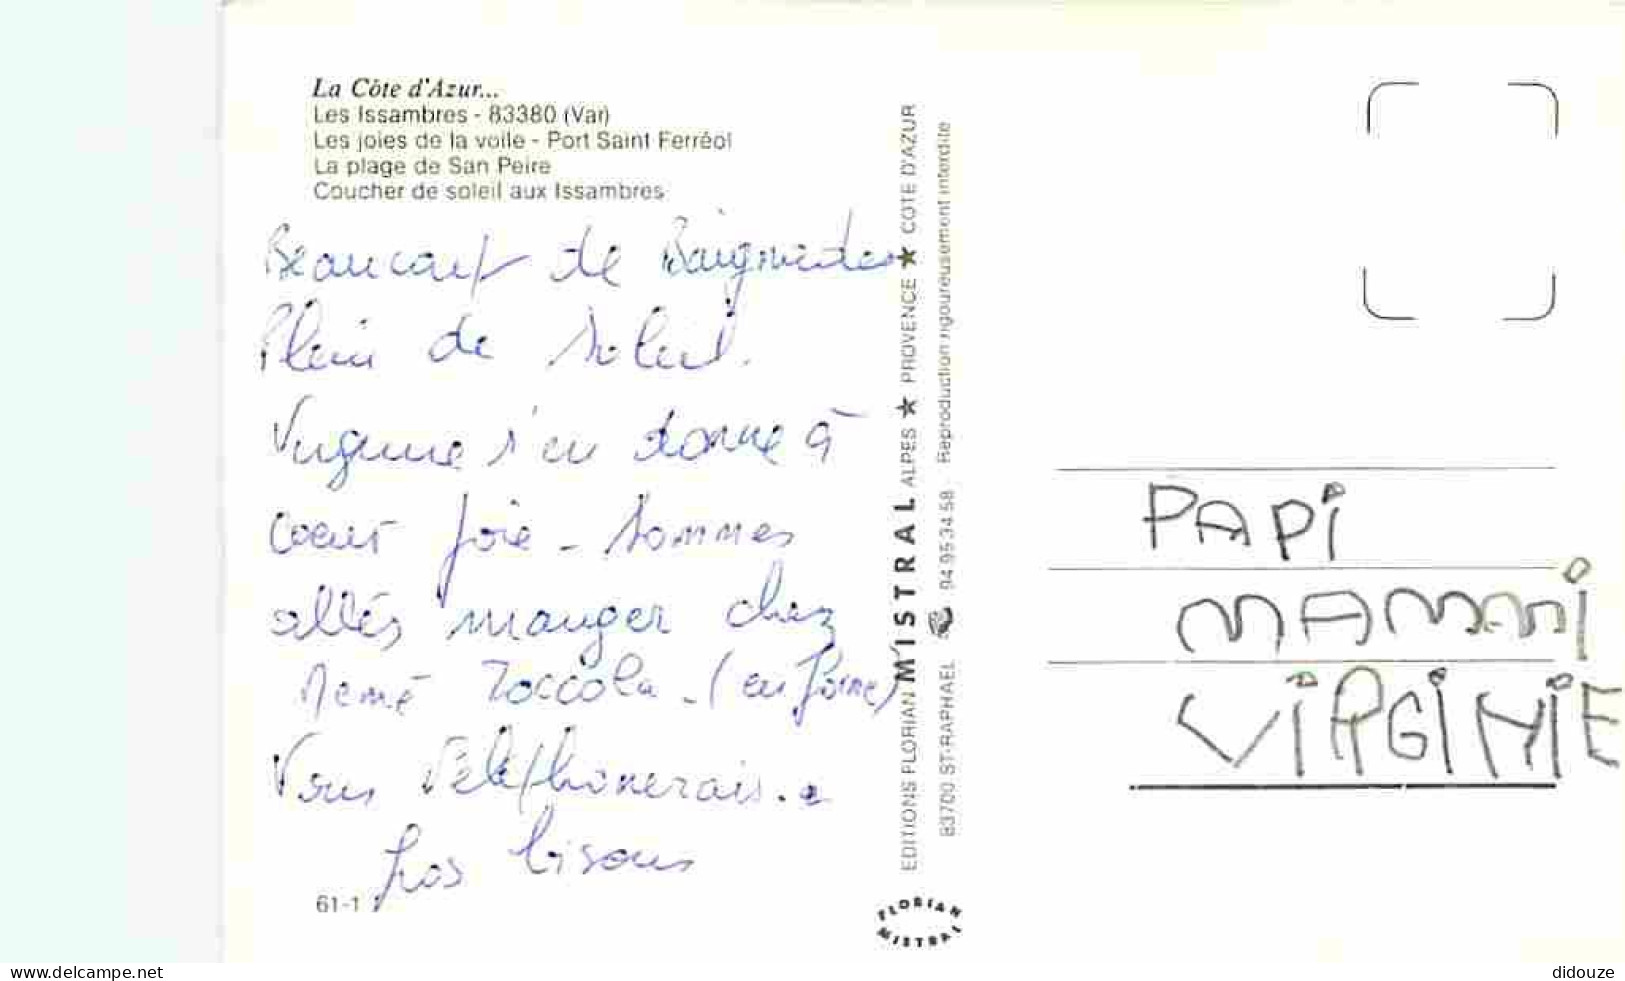 La Côte d'Azur...
Les Issambres - 83380 (Var)
Les joies de la voile - Port Saint Ferréol
La plage de San Peire
Coucher de soleil aux Issambres
Beaucoup de Baignades
Plein de Soleil.
Virginie s'en donne à
coeur joie - Sommes
allés manger chez
Mémé Zoccola - (en forme)
Vous Téléphonerais.
Gros bisous
61-1
EDITIONS FLORIAN MISTRAL ALPES ★ PROVENCE ★ COTE D'AZUR
83700 ST-RAPHAEL ☎ 94 95 34 58 - Reproduction rigoureusement interdite
FLORIAN
MISTRAL
PAPI
MAMMI
VIRGINIE
www.delcampe.net
didouze